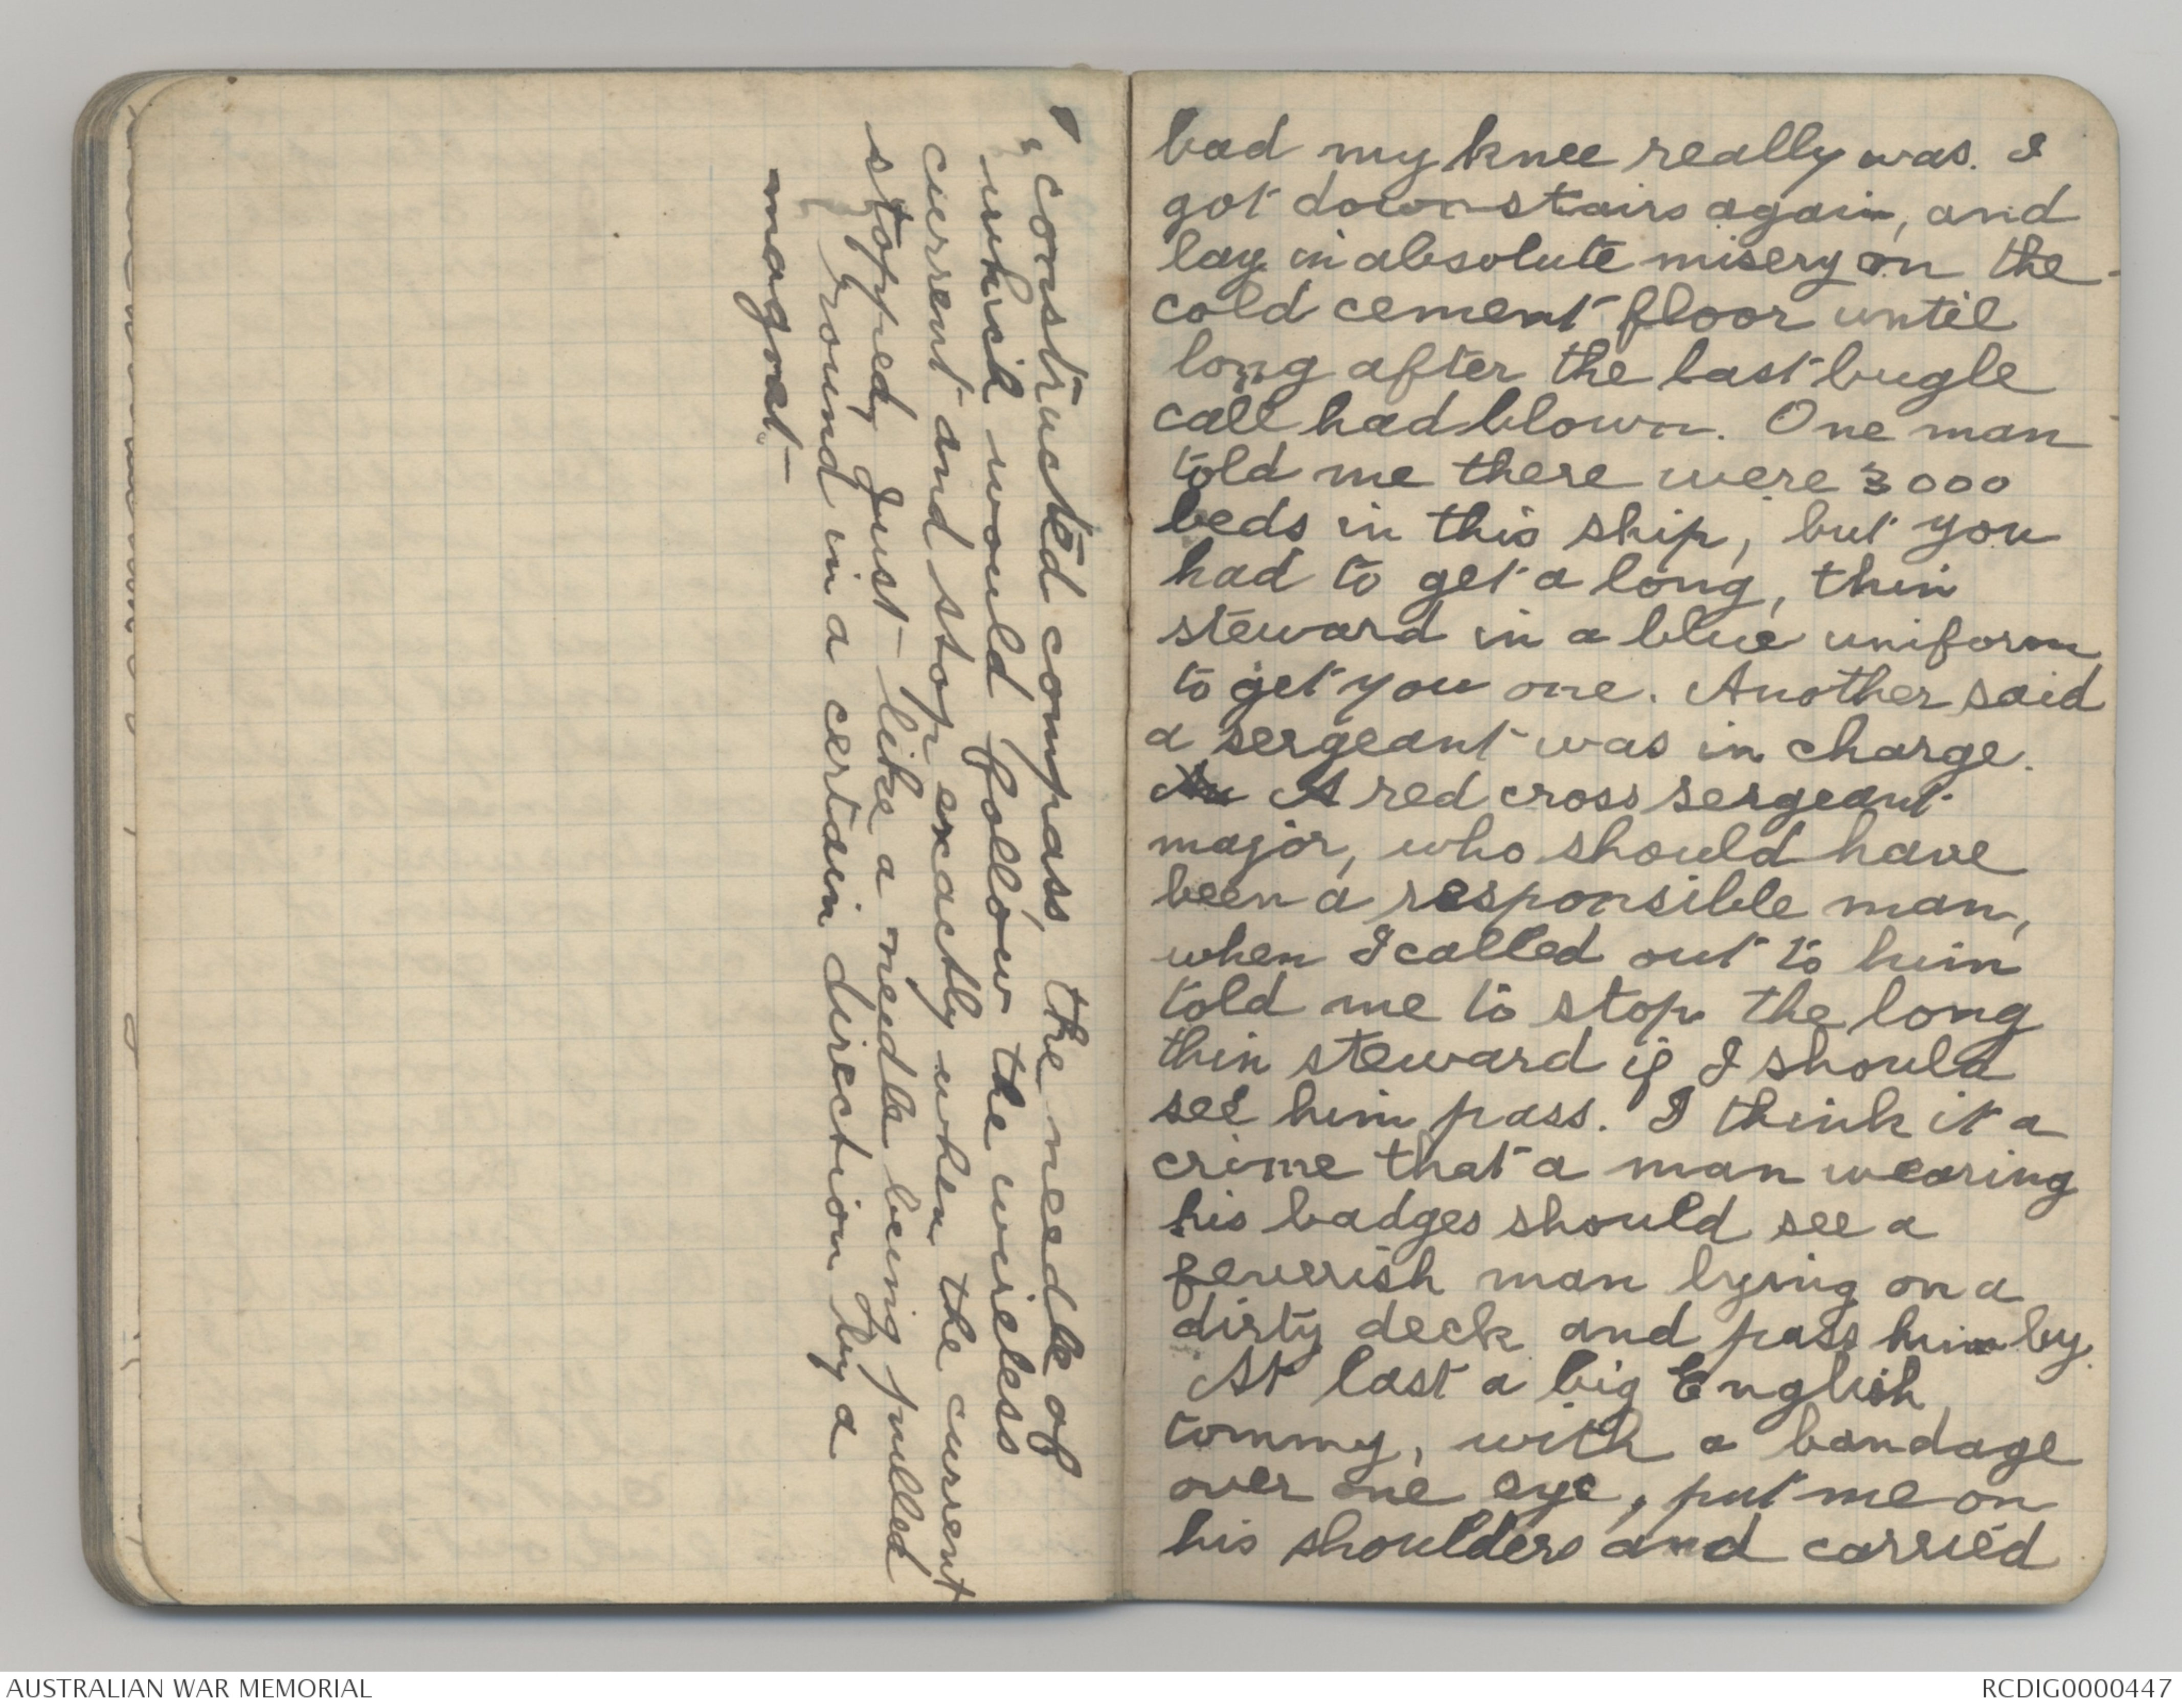 constructed compass, the needle of
which would follow the wireless
current and stop exactly when the current
stopped, just like a needle being pulled
round in a certain direction by a
magnet.
bad my knee really was. I
got downstairs again, and
lay in absolute misery on the
cold cement floor until
long after the last bugle
call had blown. One man
told me there were 3000
beds in this ship, but you
had to get a long, thin
steward in a blue uniform
to get you one. Another said
a sergeant was in charge.
A red cross sergeant
major, who should have
been a responsible man,
when I called out to him
told me to stop the long
thin steward if I should
see him pass. I think it a
crime that a man wearing
his badges should see a
feverish man lying on a
dirty deck and pass him by.
At last a big English
tommy, with a bandage
over one eye, put me on
his shoulders and carried
AUSTRALIAN WAR MEMORIAL
RCDIG0000447